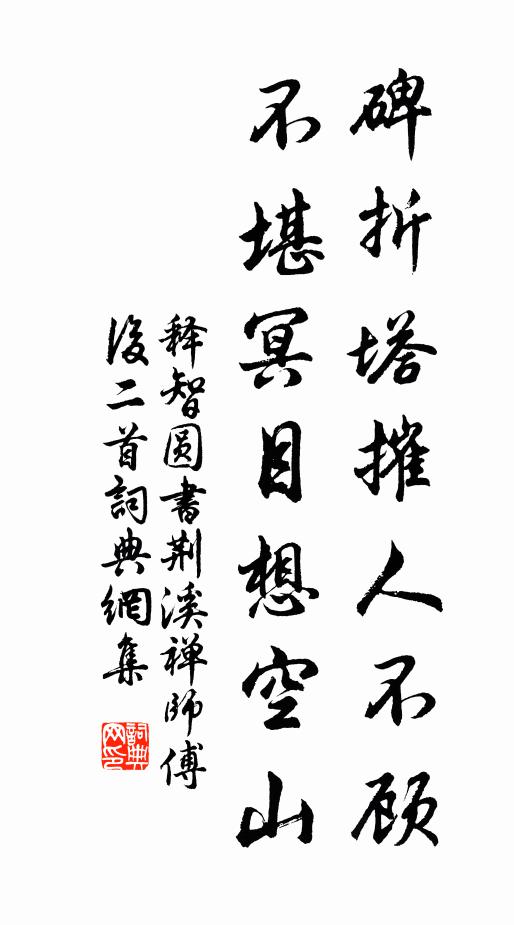 碑折塔摧人不顾
不堪冥目想空山
释智圆书荆溪禅师傅
後二首詞典網集
詞典
网印